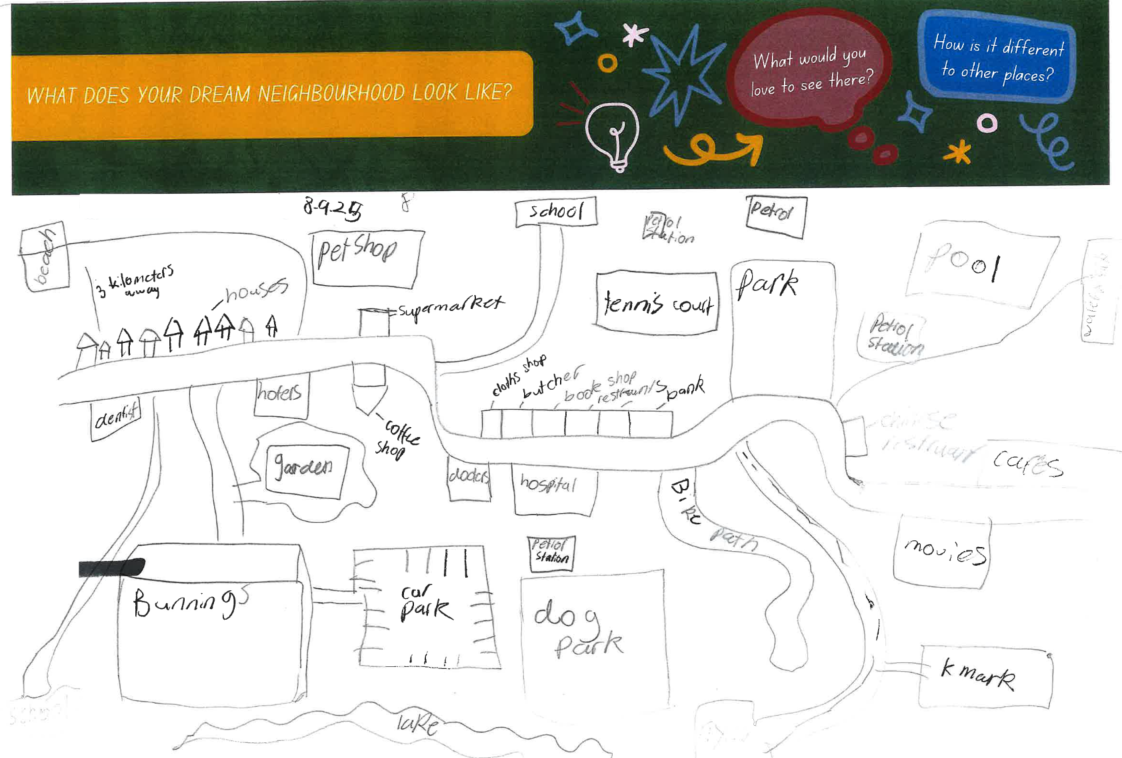 WHAT DOES YOUR DREAM NEIGHBOURHOOD LOOK LIKE?
What would you
love to see there?
How is it different
to other places?
8-9-25
8
school
Petrol
Station
Petrol
beach
Pet Shop
Pool
3 kilometers
away
houses
supermarket
tennis court
Park
Petrol
Station
cloths shop
butcher
book shop
bank
dentist
hotels
coffee
shop
garden
doctors
hospital
Bike path
cafes
movies
Petrol
Station
Bunnings
car
Park
dog
Park
k mark
school
lake